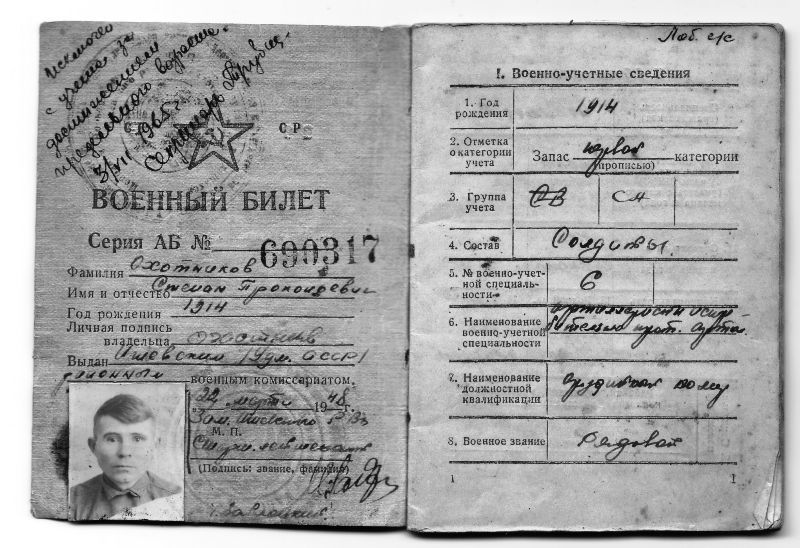 Исключен
с учета за
достижением
предельного возраста.
3/VII 1965 г.
СССР
ВОЕННЫЙ БИЛЕТ
Серия АБ № 690317
Фамилия Охотников
Имя и отчество Степан Прокопьевич
Год рождения 1914
Личная подпись
владельца
Выдан Ижевским /Удм. АССР/
районным
военным комиссариатом.
„22 марта 1948 г.
М. П.
Старш. лейтенант
(Подпись: звание, фамилия)
Лоб. с/с
I. Военно-учетные сведения
1. Год
рождения 1914
2. Отметка
о категории
учета Запас первой категории
(прописью)
3. Группа
учета СВ СА
4. Состав Солдаты
5. № военно-учет-
ной специаль-
ности 6
6. Наименование
военно-учетной
специальности
7. Наименование
должностной
квалификации орудийный номер
8. Военное звание Рядовой
1
1